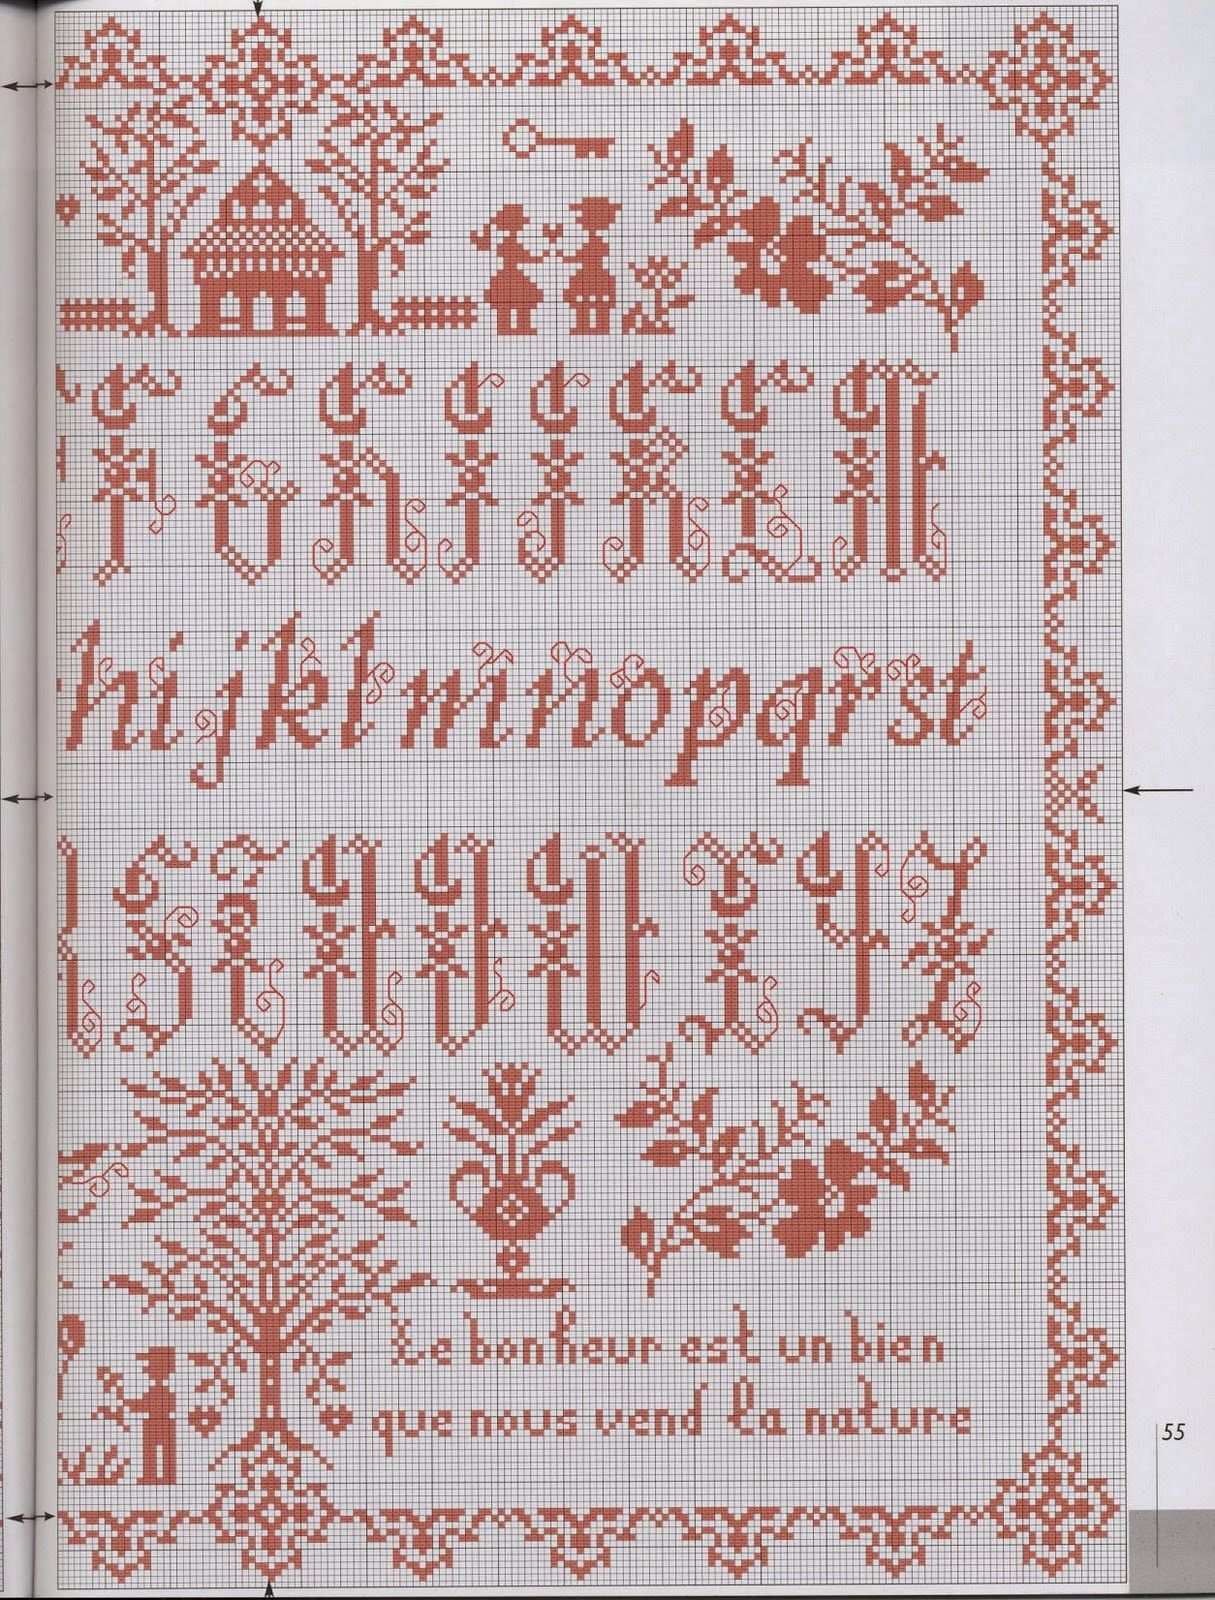 F G H I J K L M
h i j k l m n o p q r s t
S T U V W X Y Z
Le bonheur est un bien
que nous vend la nature
55